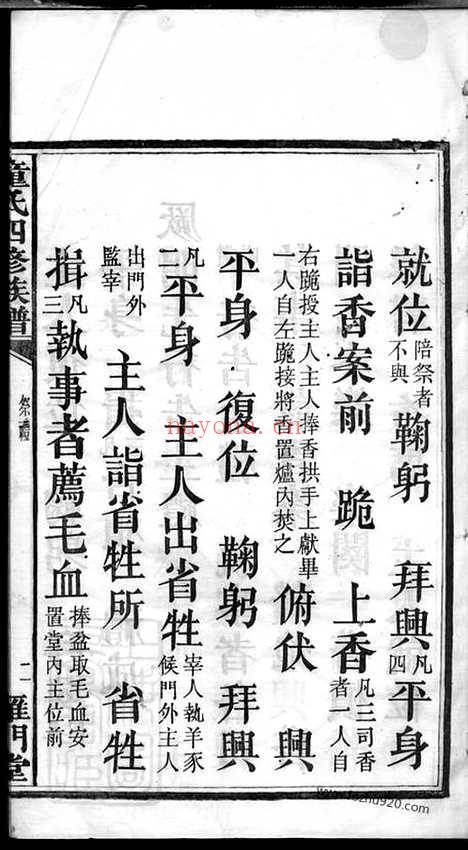 就位陪祭者不與鞠躬 拜興凡四平身
詣香案前 跪 上香凡三司香者一人自
右跪授主人主人捧香拱手上獻畢一人自左跪接將香置爐內焚之 俯伏 興
平身 復位 鞠躬 拜興
凡二平身 主人出省牲宰人執羊豕候門外主人
出門外監宰 主人詣省牲所 省牲
揖凡三執事者薦毛血捧盆取毛血安置堂內主位前
童氏四修族譜 祭禮 二 雁門堂
nayona.cn
www.fozhu920.com